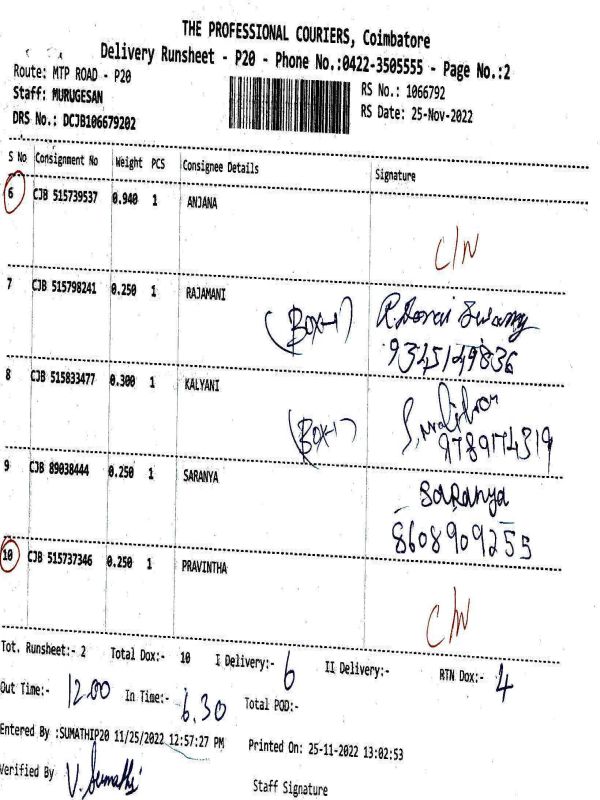 THE PROFESSIONAL COURIERS, Coimbatore
Delivery Runsheet - P20 - Phone No.:0422-3505555 - Page No.:2
Route: MTP ROAD - P20
RS No.: 1066792
Staff: MURUGESAN
RS Date: 25-Nov-2022
DRS No.: DCJB106679202
S No Consignment No Weight PCS Consignee Details Signature
6 CJB 515739537 0.940 1 ANJANA
C/N
7 CJB 515798241 0.250 1 RAJAMANI
(BOX-1)
9345149836
8 CJB 515833477 0.300 1 KALYANI
(BOX-1)
9789174319
9 CJB 89038444 0.250 1 SARANYA
SaRanya
8608909255
10 CJB 515737346 0.250 1 PRAVINTHA
C/N
Tot. Runsheet:- 2 Total Dox:- 10 I Delivery:- 6 II Delivery:- RTN Dox:- 4
Out Time:- 12.00 In Time:- 6.30 Total POD:-
Entered By :SUMATHIP20 11/25/2022 12:57:27 PM Printed On: 25-11-2022 13:02:53
Verified By V. Sumathi Staff Signature